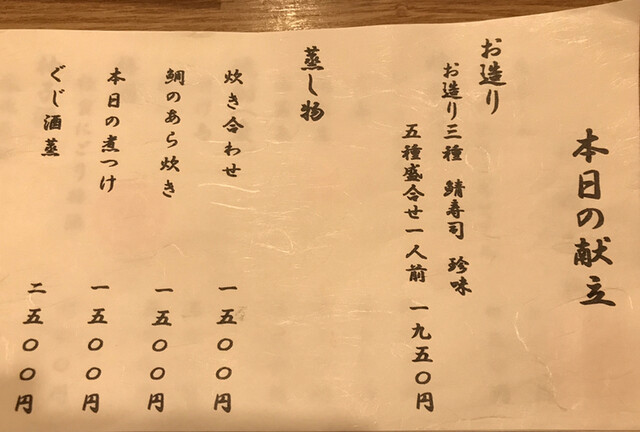 本日の献立
お造り
お造り三種 鯖寿司 珍味
五種盛合せ一人前 一九五〇円
蒸し物
炊き合わせ 一五〇〇円
鯛のあら炊き 一五〇〇円
本日の煮つけ 一五〇〇円
ぐじ酒蒸 二五〇〇円